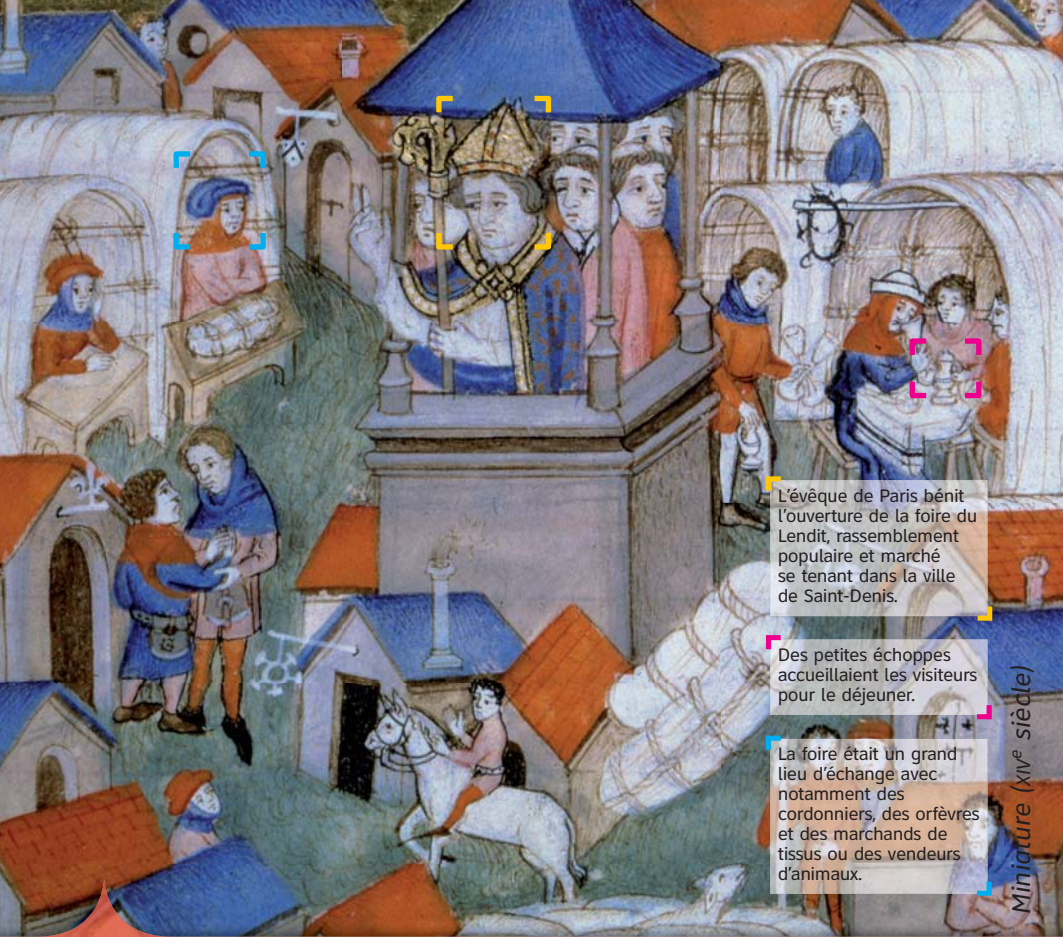 L'évêque de Paris bénit
l'ouverture de la foire du
Lendit, rassemblement
populaire et marché
se tenant dans la ville
de Saint-Denis.
Des petites échoppes
accueillaient les visiteurs
pour le déjeuner.
La foire était un grand
lieu d'échange avec
notamment des
cordonniers, des orfèvres
et des marchands de
tissus ou des vendeurs
d'animaux.
Miniature (XIVe siècle)